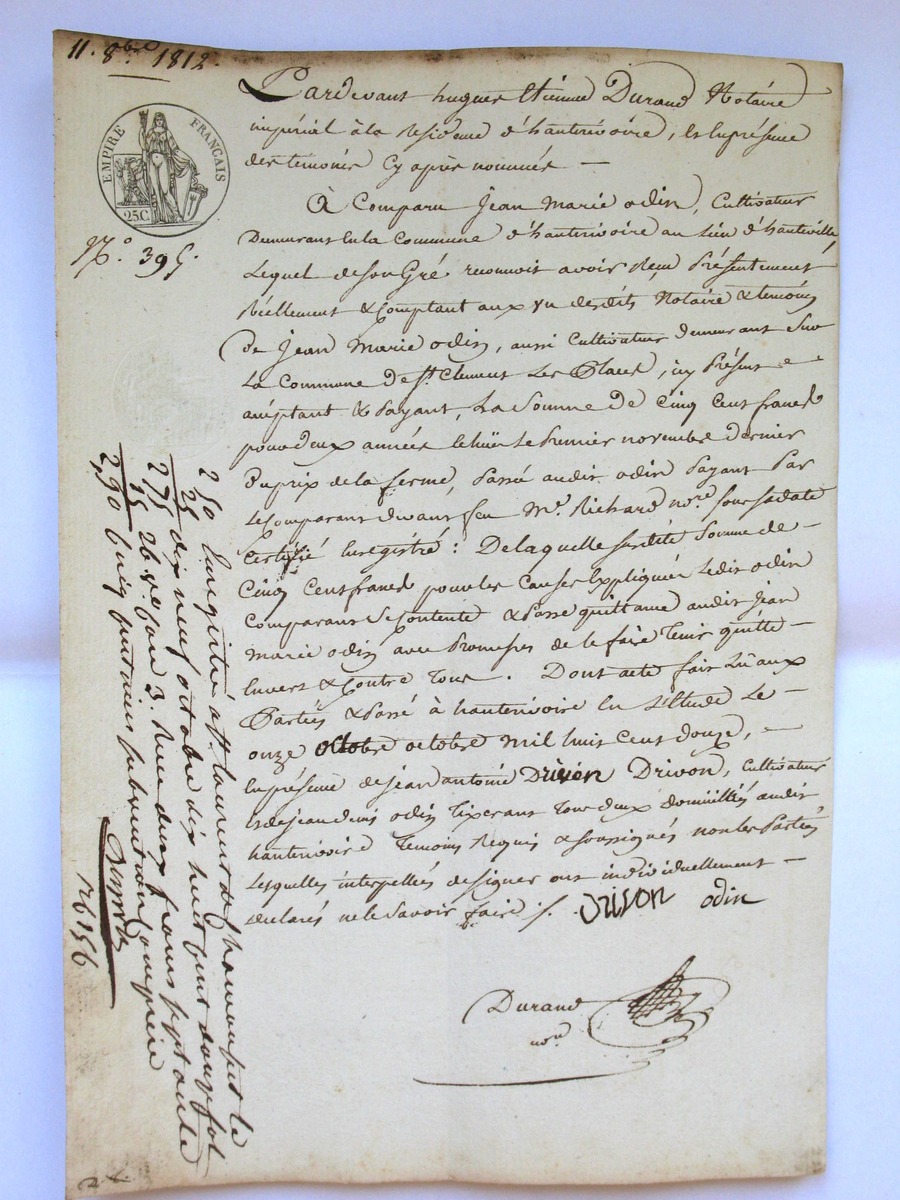 11. 8bre 1812.
EMPIRE FRANÇAIS
25C
No. 395.
Pardevant hugues Etienne Durand Notaire
impérial à la Residence d'hauterivoire, et En présence
des temoins Cy après nommés —
A Comparu Jean Marie odin, Cultivateur
Demeurant En la Commune d'hauterivoire au lieu d'hauteville,
Lequel de Son Gré reconnoit avoir Reçu Présentement
Réellement & Comptant aux yu desdits Notaire & temoins
De Jean Marie odin, aussi Cultivateur demeurant Sur
La Commune De St. Clement Les Places, icy Présent &
acceptant & Payant, La Somme De Cinq Cent francs
pour deux années Echües le Premier novembre dernier
Du prix de la ferme, Passé audit odin Payant Par
Le Comparant devant feu Me. Richard nore. sous sa date
Certifié Enregistré : De laquelle susdite Somme de
Cinq Cent francs pour les Causes Expliquées Ledit odin
Comparant Se Contente & Passe quittance audit Jean
Marie odin avec Promesses de le faire Tenir quitte —
Envert & Contre Tous. Dont acte fait Lû aux
Parties & Passé à hauterivoire En L'Etude Le —
onze octobre octobre Mil huit Cent Douze, —
En présence de jean antoine Drivon Drivon, Cultivateur
et de jean denis odin Tixerant Tous deux domiciliés audit
hauterivoire Temoins Requis & soussignés non les Parties
Lesquelles interpellées de signer ont individuellement —
declarés ne le Savoir faire ./.
Drivon odin
Durand
nore
2,50 Enregistré à St. Laurent de Chamousset le
25 dix neuf octobre dix huit cent douze fol
2,75 26 vo Case 3. Reçu deux francs soixante
15
2,90 Cinq centimes subvention comprise
ro 156